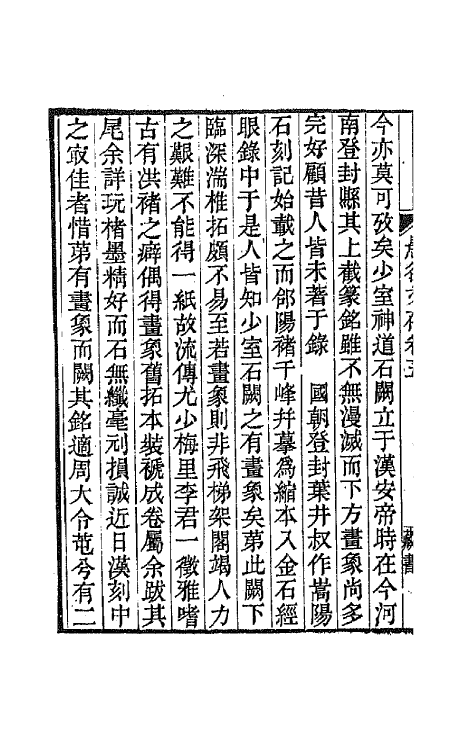 今亦莫可攷矣少室神道石闕立于漢安帝時在今河
南登封縣其上截篆銘雖不無漫滅而下方畫象尚多
完好顧昔人皆未著于錄　國朝登封葉井叔作嵩陽
石刻記始載之而郃陽褚千峰并摹爲縮本入金石經
眼錄中于是人皆知少室石闕之有畫象矣第此闕下
臨深湍椎拓頗不易至若畫象則非飛梯架閣竭人力
之艱難不能得一紙故流傳尤少梅里李君一徵雅嗜
古有洪褚之癖偶得畫象舊拓本裝褫成卷屬余跋其
尾余詳玩楮墨精好而石無纖毫刓損誠近日漢刻中
之㝡佳者惜第有畫象而闕其銘適周大令䓑兮有二